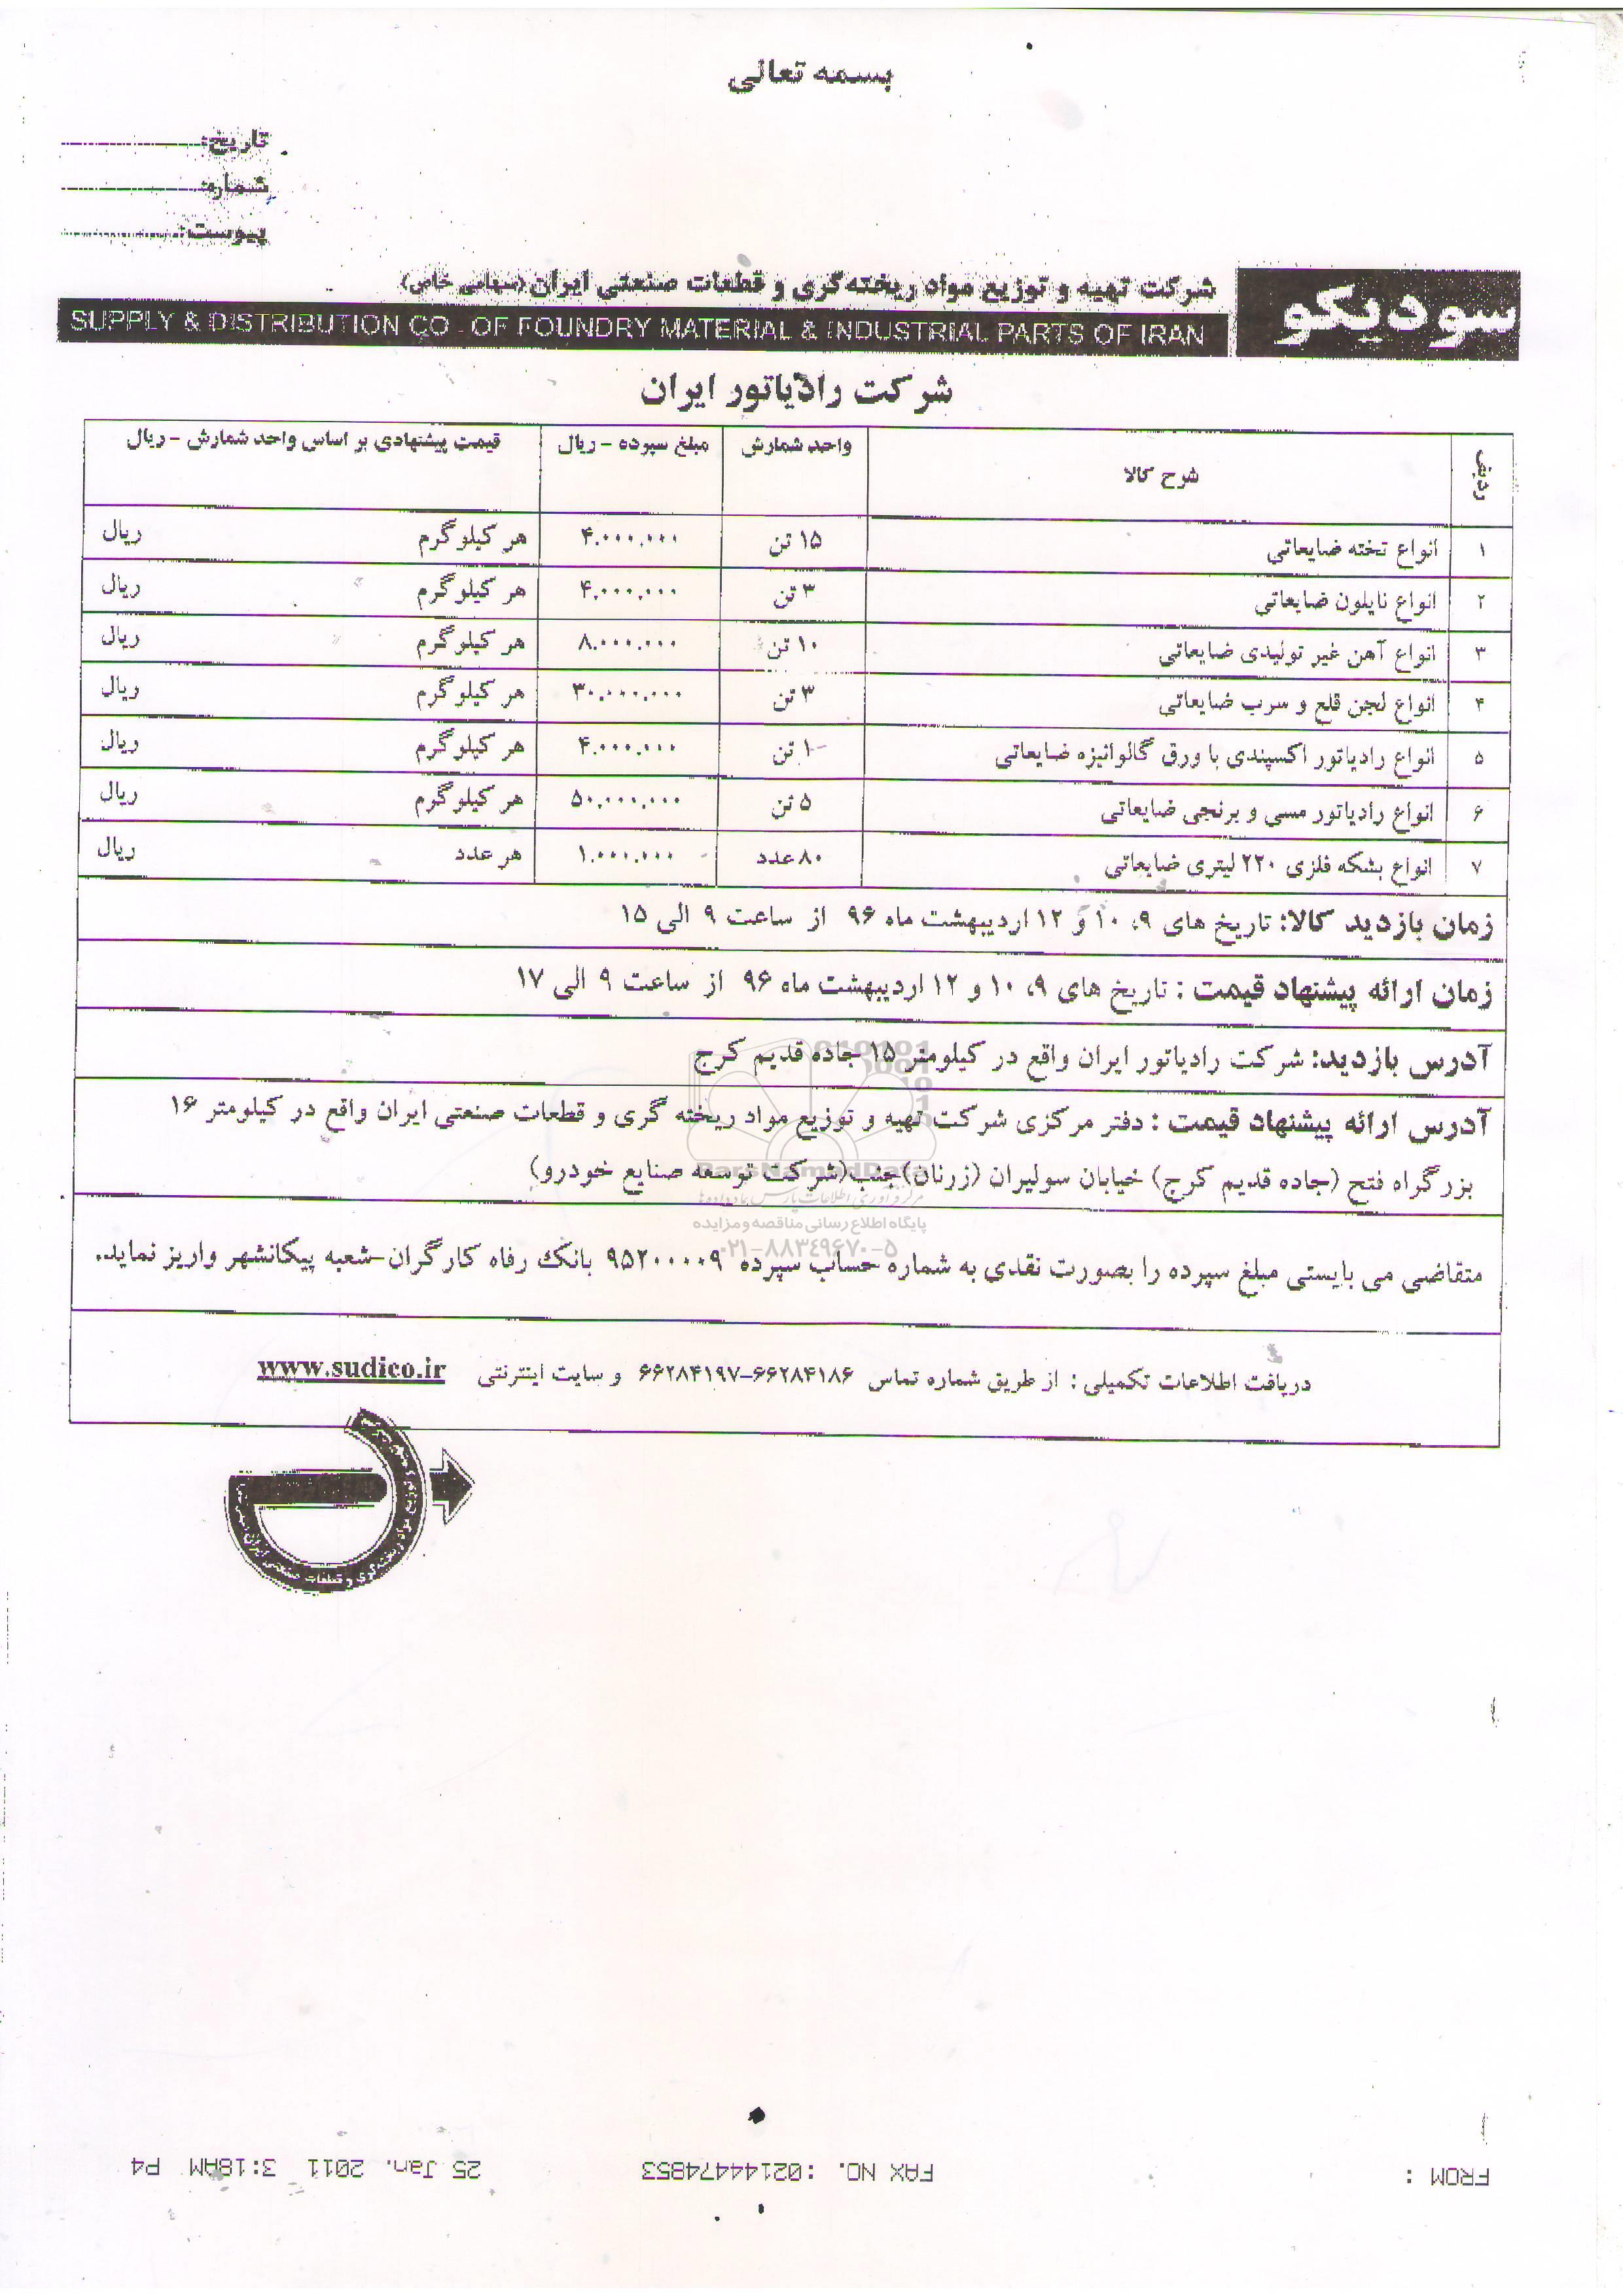 بسمه تعالی
تاریخ:
شماره:
پیوست:
سودیکو
شرکت تهیه و توزیع مواد ریخته‌گری و قطعات صنعتی ایران (سهامی خاص)
SUPPLY & DISTRIBUTION CO. OF FOUNDRY MATERIAL & INDUSTRIAL PARTS OF IRAN
شرکت رادیاتور ایران
ردیف شرح کالا واحد شمارش مبلغ سپرده - ریال قیمت پیشنهادی بر اساس واحد شمارش - ریال
۱ انواع تخته ضایعاتی ۱۵ تن ۴.۰۰۰.۰۰۰ هر کیلوگرم ریال
۲ انواع نایلون ضایعاتی ۳ تن ۴.۰۰۰.۰۰۰ هر کیلوگرم ریال
۳ انواع آهن غیر تولیدی ضایعاتی ۱۰ تن ۸.۰۰۰.۰۰۰ هر کیلوگرم ریال
۴ انواع لجن قلع و سرب ضایعاتی ۳ تن ۳۰.۰۰۰.۰۰۰ هر کیلوگرم ریال
۵ انواع رادیاتور اکسپندی با ورق گالوانیزه ضایعاتی ۱۰ تن ۴.۰۰۰.۰۰۰ هر کیلوگرم ریال
۶ انواع رادیاتور مسی و برنجی ضایعاتی ۵ تن ۵۰.۰۰۰.۰۰۰ هر کیلوگرم ریال
۷ انواع بشکه فلزی ۲۲۰ لیتری ضایعاتی ۸۰ عدد ۱.۰۰۰.۰۰۰ هر عدد ریال
زمان بازدید کالا: تاریخ های ۹، ۱۰ و ۱۲ اردیبهشت ماه ۹۶ از ساعت ۹ الی ۱۵
زمان ارائه پیشنهاد قیمت : تاریخ های ۹، ۱۰ و ۱۲ اردیبهشت ماه ۹۶ از ساعت ۹ الی ۱۷
آدرس بازدید: شرکت رادیاتور ایران واقع در کیلومتر ۱۵ جاده قدیم کرج
آدرس ارائه پیشنهاد قیمت : دفتر مرکزی شرکت تهیه و توزیع مواد ریخته گری و قطعات صنعتی ایران واقع در کیلومتر ۱۶
بزرگراه فتح (جاده قدیم کرج) خیابان سولیران (زرنان) جنب (شرکت توسعه صنایع خودرو)
ParsNamadData
مرکز فرآوری اطلاعات پارس نماد داده ها
پایگاه اطلاع رسانی مناقصه و مزایده
۰۲۱-۸۸۳۴۹۶۷۰-۵
متقاضی می بایستی مبلغ سپرده را بصورت نقدی به شماره حساب سپرده ۹۵۲۰۰۰۰۹ بانک رفاه کارگران-شعبه پیکانشهر واریز نماید.
دریافت اطلاعات تکمیلی : از طریق شماره تماس ۶۶۲۸۴۱۸۶-۶۶۲۸۴۱۹۷ و سایت اینترنتی www.sudico.ir
FROM : FAX NO. :02144474853 25 Jan. 2011 3:18AM P4